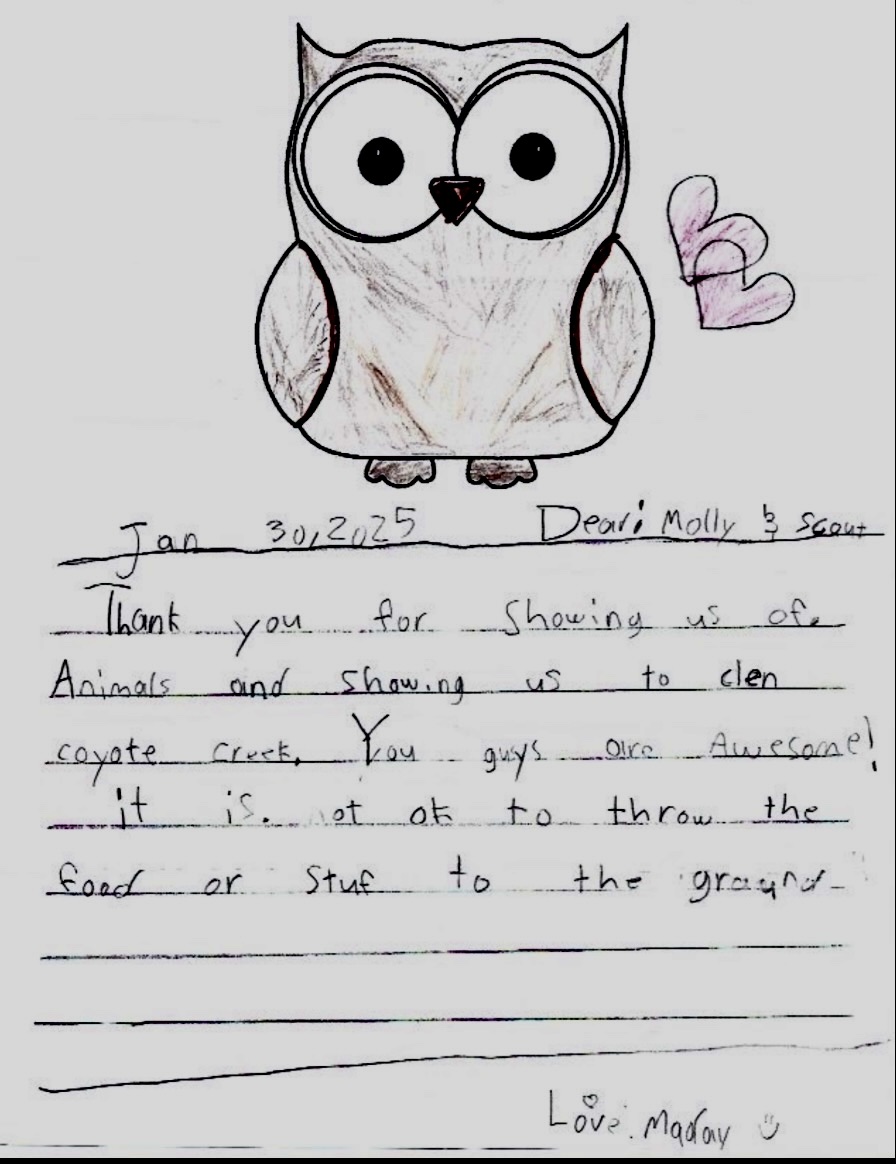 Jan 30, 2025 Dear: Molly & Scout
Thank you for showing us of.
Animals and showing us to clen
coyote creek. You guys are Awesome!
it is. not ok to throw the
food or stuf to the ground
Love. Maday